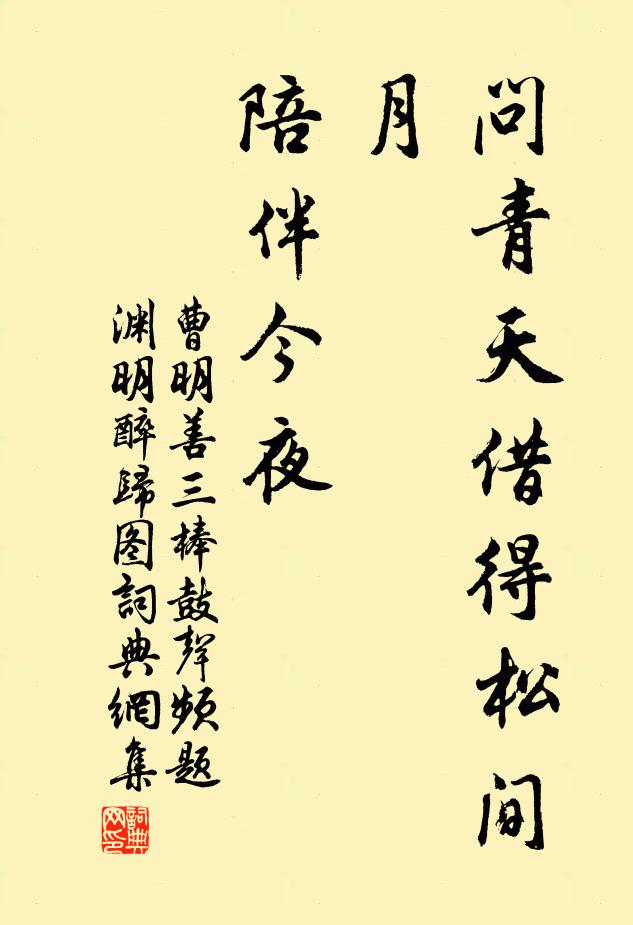 问青天借得松间
月
陪伴今夜
曹明善三棒鼓聲频题
渊明醉歸图詞典網集
詞典
网印